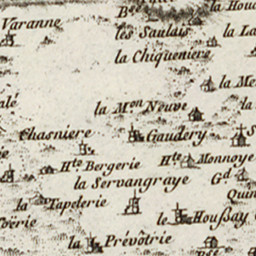 la Houd
Bas
Varanne
les Saulais
la La
la Chiqueniere
la Me
alé
la Mon Neuve
la
Chasniere
Gaudery
Hte Bergerie
Hte Monnoye
la Servangraye
Gd
Quin
la Tapelerie
le Houssay
oërie
la Prévôtrie